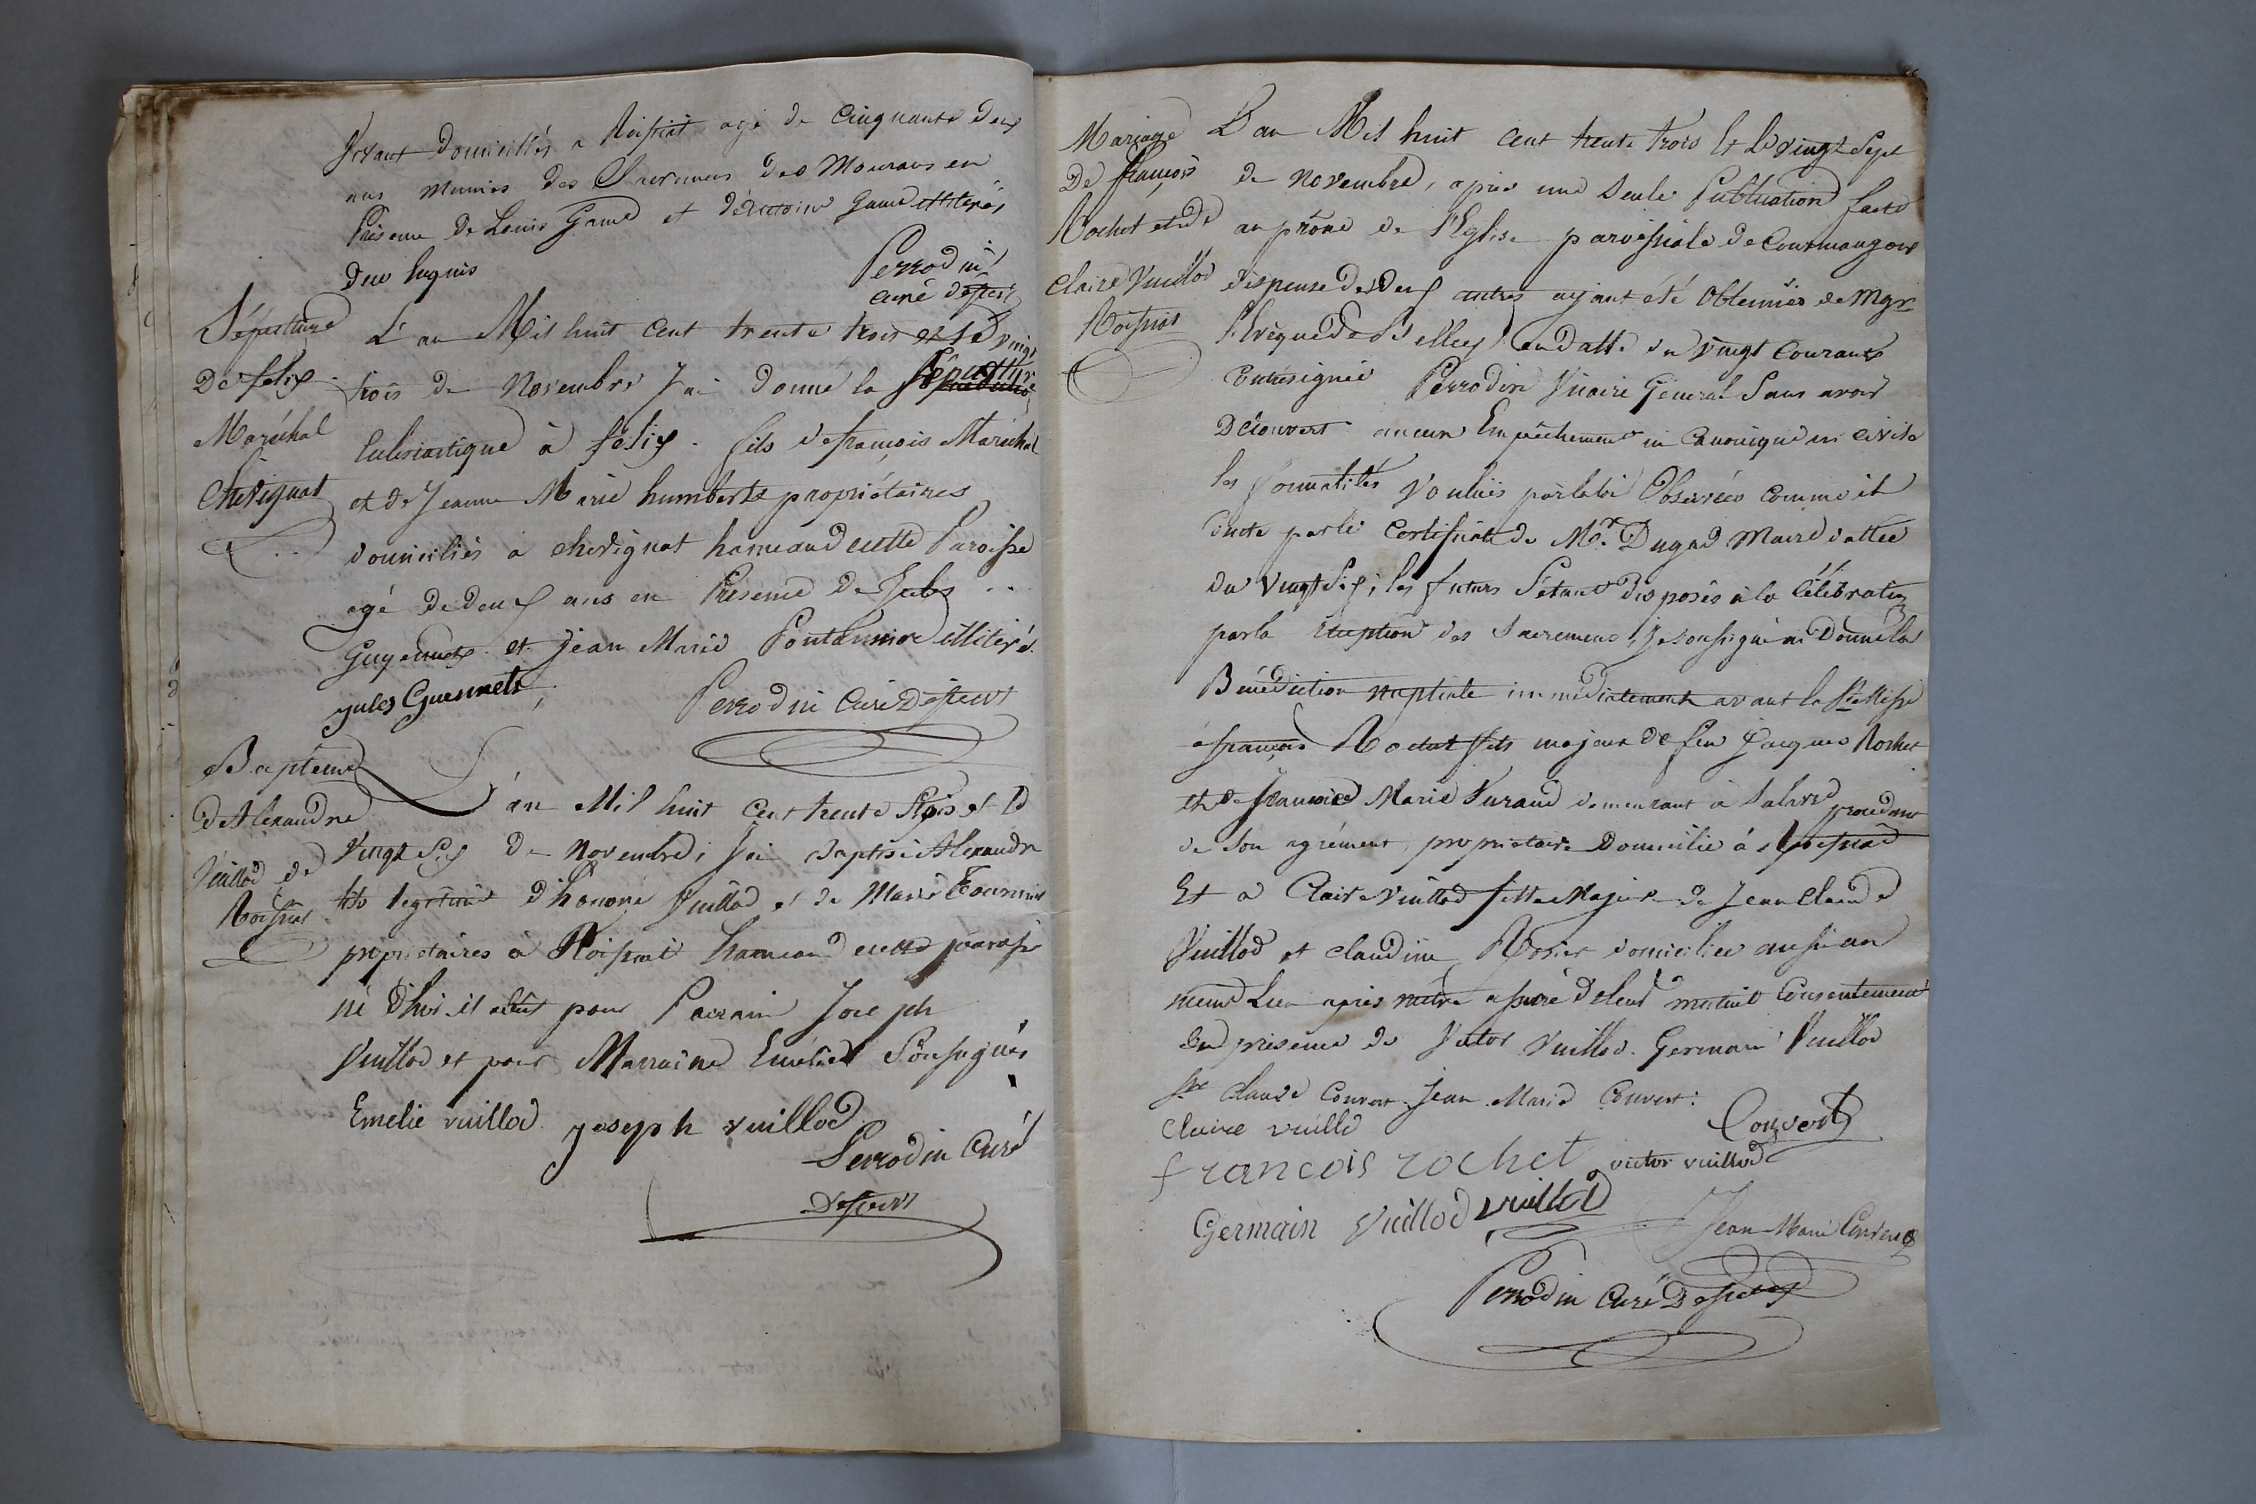 vivant domiciliés a Roissiat agé de cinquante deux
ans munies des Sacremens des Mourans en
Présence de Louis Game et d'Antoine Game illitérés
Perrodin
curé desserv
Sépulture
De felix
Maréchal
Chevignat
L'an Mil huit cent trente trois et le vingt
trois de Novembre J'ai donné la Sépulture
Eclesiastique à félix fils de françois Maréchal
et de Jeanne Marie humbert propriétaires
domiciliés a chevignat hameau de cette Paroisse
agé de deux ans en Présence de Jules
Guyennet et Jean Marie Pontannier illitéré
jules Guesnets
Perrodin Curé Desservt
Baptême
De Alexandre
Vuillod de
Roissiat
L'an Mil huit Cent trente trois et le
vingt six de Novembre, J'ai Baptisé Alexandre
fils legitime d'honoré Vuillod et de Marie Tournier
propriétaires à Roissiat hameau de cette paroisse
né d'hier il a eût pour Parrain Joseph
Vuillod et pour Marraine Emélie Sousignés
Emelie vuillod joseph vuillod
Perrodin Curé
Desservt
Mariage
De françois
Rochet et de
Claire Vuillod
Roissiat
L'an Mil huit cent trente trois et le vingt sept
de novembre, après une seule Publication faite
au prône de l'Eglise paroissiale de Courmangoux
dispense des deux autres ayant été obtenües de Mgr
l'Evêque de Belley en datte du vingt courant
Contresignée Perrodin Vicaire Général Sans avoir
Découvert aucun Empêchement ni Canonique ni civile
les formalités voulües par la loi Observées comme il
conste par le Certificat de Mr. Dugad Maire dattée
du vingt six; les futurs s'étant disposés à la Célébration
par la réception des Sacremens, Je sousigné ai Donné la
Bénédiction nuptiale immédiatement avant la Ste Messe
à françois Rochet fils majeur de feu Jacques Rochet
et de françoise Marie Curaud demeurant à Salavre procédant
de son agrément, propriétaire Domicilié à Roissiat
Et a Claire Vuillod fille Majeure de Jean Claude
Vuillod et Claudine Rosier domiciliée aussi au
même Lieu après m'être assuré de leur mutuel Consentement
En présence de Victor Vuillod Germain Vuillod
claude Convert Jean Marie Convert:
Claire vuillod Convert
francois rochet victor vuillod
Germain Vuillod vuillod
Jean Marie Convert
Perrodin Curé Desservt